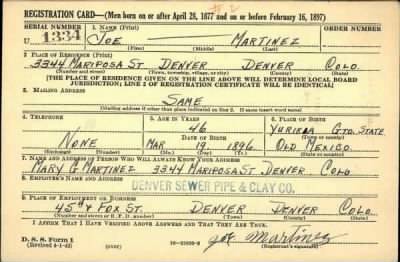 REGISTRATION CARD—(Men born on or after April 28, 1877 and on or before February 16, 1897)
SERIAL NUMBER 1. NAME (Print) ORDER NUMBER
U 1334 JOE MARTINEZ
(First) (Middle) (Last)
2. PLACE OF RESIDENCE (Print)
3344 MARIPOSA ST DENVER DENVER COLO.
(Number and street) (Town, township, village, or city) (County) (State)
[THE PLACE OF RESIDENCE GIVEN ON THE LINE ABOVE WILL DETERMINE LOCAL BOARD
JURISDICTION; LINE 2 OF REGISTRATION CERTIFICATE WILL BE IDENTICAL]
3. MAILING ADDRESS
SAME
[Mailing address if other than place indicated on line 2. If same insert word same]
4. TELEPHONE 5. AGE IN YEARS 6. PLACE OF BIRTH
46 YURIRIA GTO. STATE
DATE OF BIRTH (Town or county)
NONE MAR 19 1896 OLD MEXICO.
(Exchange) (Number) (Mo.) (Day) (Yr.) (State or country)
7. NAME AND ADDRESS OF PERSON WHO WILL ALWAYS KNOW YOUR ADDRESS
MARY G MARTINEZ 3344 MARIPOSA ST DENVER COLO
8. EMPLOYER'S NAME AND ADDRESS
DENVER SEWER PIPE & CLAY CO.
9. PLACE OF EMPLOYMENT OR BUSINESS
45th & FOX ST. DENVER DENVER COLO.
(Number and street or R. F. D. number) (Town) (County) (State)
I AFFIRM THAT I HAVE VERIFIED ABOVE ANSWERS AND THAT THEY ARE TRUE.
D. S. S. Form 1
(Revised 4-1-42) (over) Joe Martinez
(Registrant's signature)